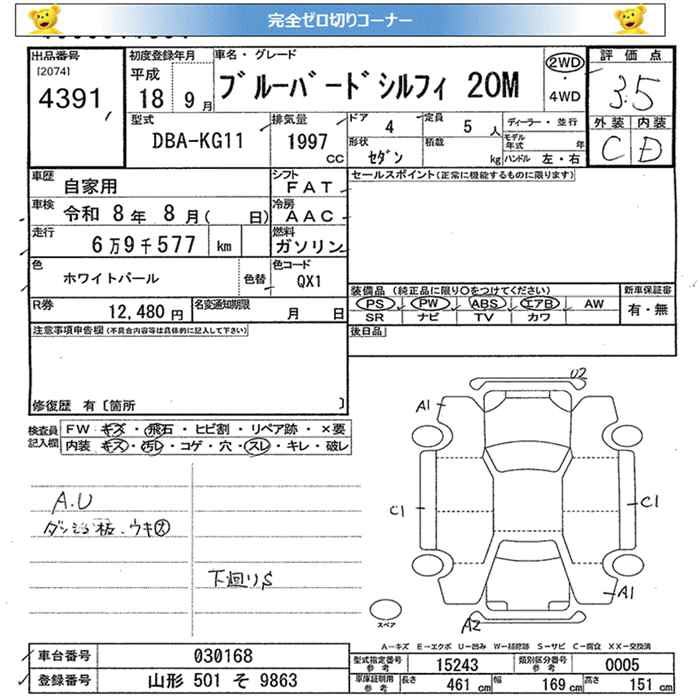 完全ゼロ切りコーナー
出品番号
[2074]
4391
初度登録年月
平成
18 9月
車名・グレード
ブルーバードシルフィ 20M
2WD
・
4WD
評価点
3.5
外装 内装
C D
型式
DBA-KG11
排気量
1997
CC
ドア 4
定員 5 人
形状 セダン
積載 kg
ディーラー・並行
モデル年式 年
ハンドル 左・右
車歴 自家用
シフト FAT
車検 令和 8年 8月( 日)
冷房 AAC
走行 6万9千577 km
燃料 ガソリン
色 ホワイトパール
色替
色コード QX1
R券 12,480 円
名変通知期限 月 日
セールスポイント(正常に機能するものに限ります)
装備品 (純正品に限り○をつけてください)
PS PW ABS エアB AW
SR ナビ TV カワ
新車保証書
有・無
後日品
注意事項申告欄(不具合内容等は具体的に記入して下さい)
修復歴 有[箇所 ]
検査員
記入欄
FW キズ・飛石・ヒビ割・リペア跡・×要
内装 キズ・汚レ・コゲ・穴・スレ・キレ・破レ
A.U
下廻りS
U2
A1
C1
C1
A1
A2
スペア
A-キズ E-エクボ U-凹み W-補修跡 S-サビ C-腐食 XX-交換済
車台番号 030168
登録番号 山形 501 そ 9863
型式指定番号
参考 15243
類別区分番号
参考 0005
車庫証明用
参考
長さ 461 cm
幅 169 cm
高さ 151 cm